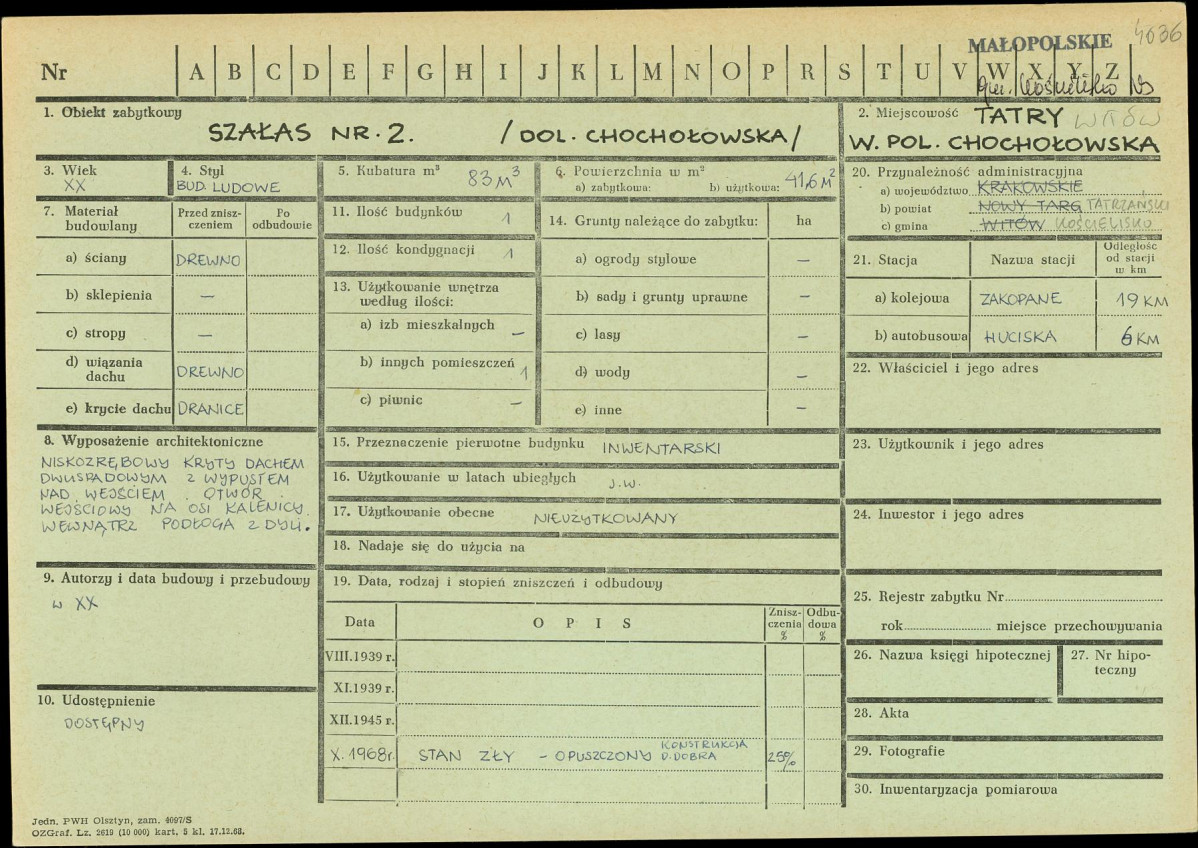 4036
MAŁOPOLSKIE
Nr A B C D E F G H I J K L M N O P R S T U V W X Y Z
gm. Kościelisko
1. Obiekt zabytkowy
SZAŁAS NR. 2. /DOL. CHOCHOŁOWSKA/
2. Miejscowość TATRY WITÓW
W. POL. CHOCHOŁOWSKA
3. Wiek
XX
4. Styl
BUD. LUDOWE
5. Kubatura m³ 83 M³
6. Powierzchnia w m²
a) zabytkowa: b) użytkowa: 41,6 M²
20. Przynależność administracyjna
a) województwo KRAKOWSKIE
b) powiat NOWY TARG TATRZAŃSKI
c) gmina WITÓW KOŚCIELISKO
7. Materiał budowlany
Przed zniszczeniem
Po odbudowie
a) ściany DREWNO
b) sklepienia —
c) stropy —
d) wiązania dachu DREWNO
e) krycie dachu DRANICE
11. Ilość budynków 1
12. Ilość kondygnacji 1
13. Użytkowanie wnętrza
według ilości:
a) izb mieszkalnych —
b) innych pomieszczeń 1
c) piwnic —
14. Grunty należące do zabytku: ha
a) ogrody stylowe —
b) sady i grunty uprawne —
c) lasy —
d) wody —
e) inne —
21. Stacja Nazwa stacji Odległość od stacji w km
a) kolejowa ZAKOPANE 19 KM
b) autobusowa HUCISKA 6 KM
22. Właściciel i jego adres
8. Wyposażenie architektoniczne
NISKOZRĘBOWY KRYTY DACHEM
DWUSPADOWYM Z WYPUSTEM
NAD WEJŚCIEM. OTWÓR
WEJŚCIOWY NA OSI KALENICY.
WEWNĄTRZ PODŁOGA Z DYLI.
15. Przeznaczenie pierwotne budynku INWENTARSKI
16. Użytkowanie w latach ubiegłych J.W.
17. Użytkowanie obecne NIEUŻYTKOWANY
18. Nadaje się do użycia na
23. Użytkownik i jego adres
24. Inwestor i jego adres
9. Autorzy i data budowy i przebudowy
W XX
19. Data, rodzaj i stopień zniszczeń i odbudowy
Data OPIS Zniszczenia % Odbudowa %
VIII.1939 r.
XI.1939 r.
XII.1945 r.
X. 1968r. STAN ZŁY – OPUSZCZONY KONSTRUKCJA D. DOBRA 25%
25. Rejestr zabytku Nr
rok miejsce przechowywania
26. Nazwa księgi hipotecznej
27. Nr hipoteczny
10. Udostępnienie
DOSTĘPNY
28. Akta
29. Fotografie
30. Inwentaryzacja pomiarowa
Jedn. PWH Olsztyn, zam. 4097/S
OZGraf. Lz. 2619 (10 000) kart. 5 kl. 17.12.68.